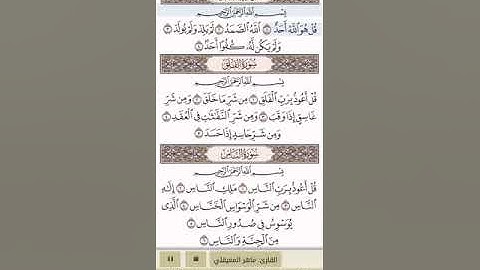 بِسْمِ اللَّهِ الرَّحْمَٰنِ الرَّحِيمِ
قُلْ هُوَ اللَّهُ أَحَدٌ ١ اللَّهُ الصَّمَدُ ٢ لَمْ يَلِدْ وَلَمْ يُولَدْ ٣
وَلَمْ يَكُن لَّهُ كُفُوًا أَحَدٌ ٤
سُورَةُ الْفَلَقِ
بِسْمِ اللَّهِ الرَّحْمَٰنِ الرَّحِيمِ
قُلْ أَعُوذُ بِرَبِّ الْفَلَقِ ١ مِن شَرِّ مَا خَلَقَ ٢ وَمِن شَرِّ
غَاسِقٍ إِذَا وَقَبَ ٣ وَمِن شَرِّ النَّفَّاثَاتِ فِي الْعُقَدِ ٤
وَمِن شَرِّ حَاسِدٍ إِذَا حَسَدَ ٥
سُورَةُ النَّاسِ
بِسْمِ اللَّهِ الرَّحْمَٰنِ الرَّحِيمِ
قُلْ أَعُوذُ بِرَبِّ النَّاسِ ١ مَلِكِ النَّاسِ ٢ إِلَٰهِ
النَّاسِ ٣ مِن شَرِّ الْوَسْوَاسِ الْخَنَّاسِ ٤ الَّذِي
يُوَسْوِسُ فِي صُدُورِ النَّاسِ ٥
مِنَ الْجِنَّةِ وَالنَّاسِ ٦
القارئ: ماهر المعيقلي